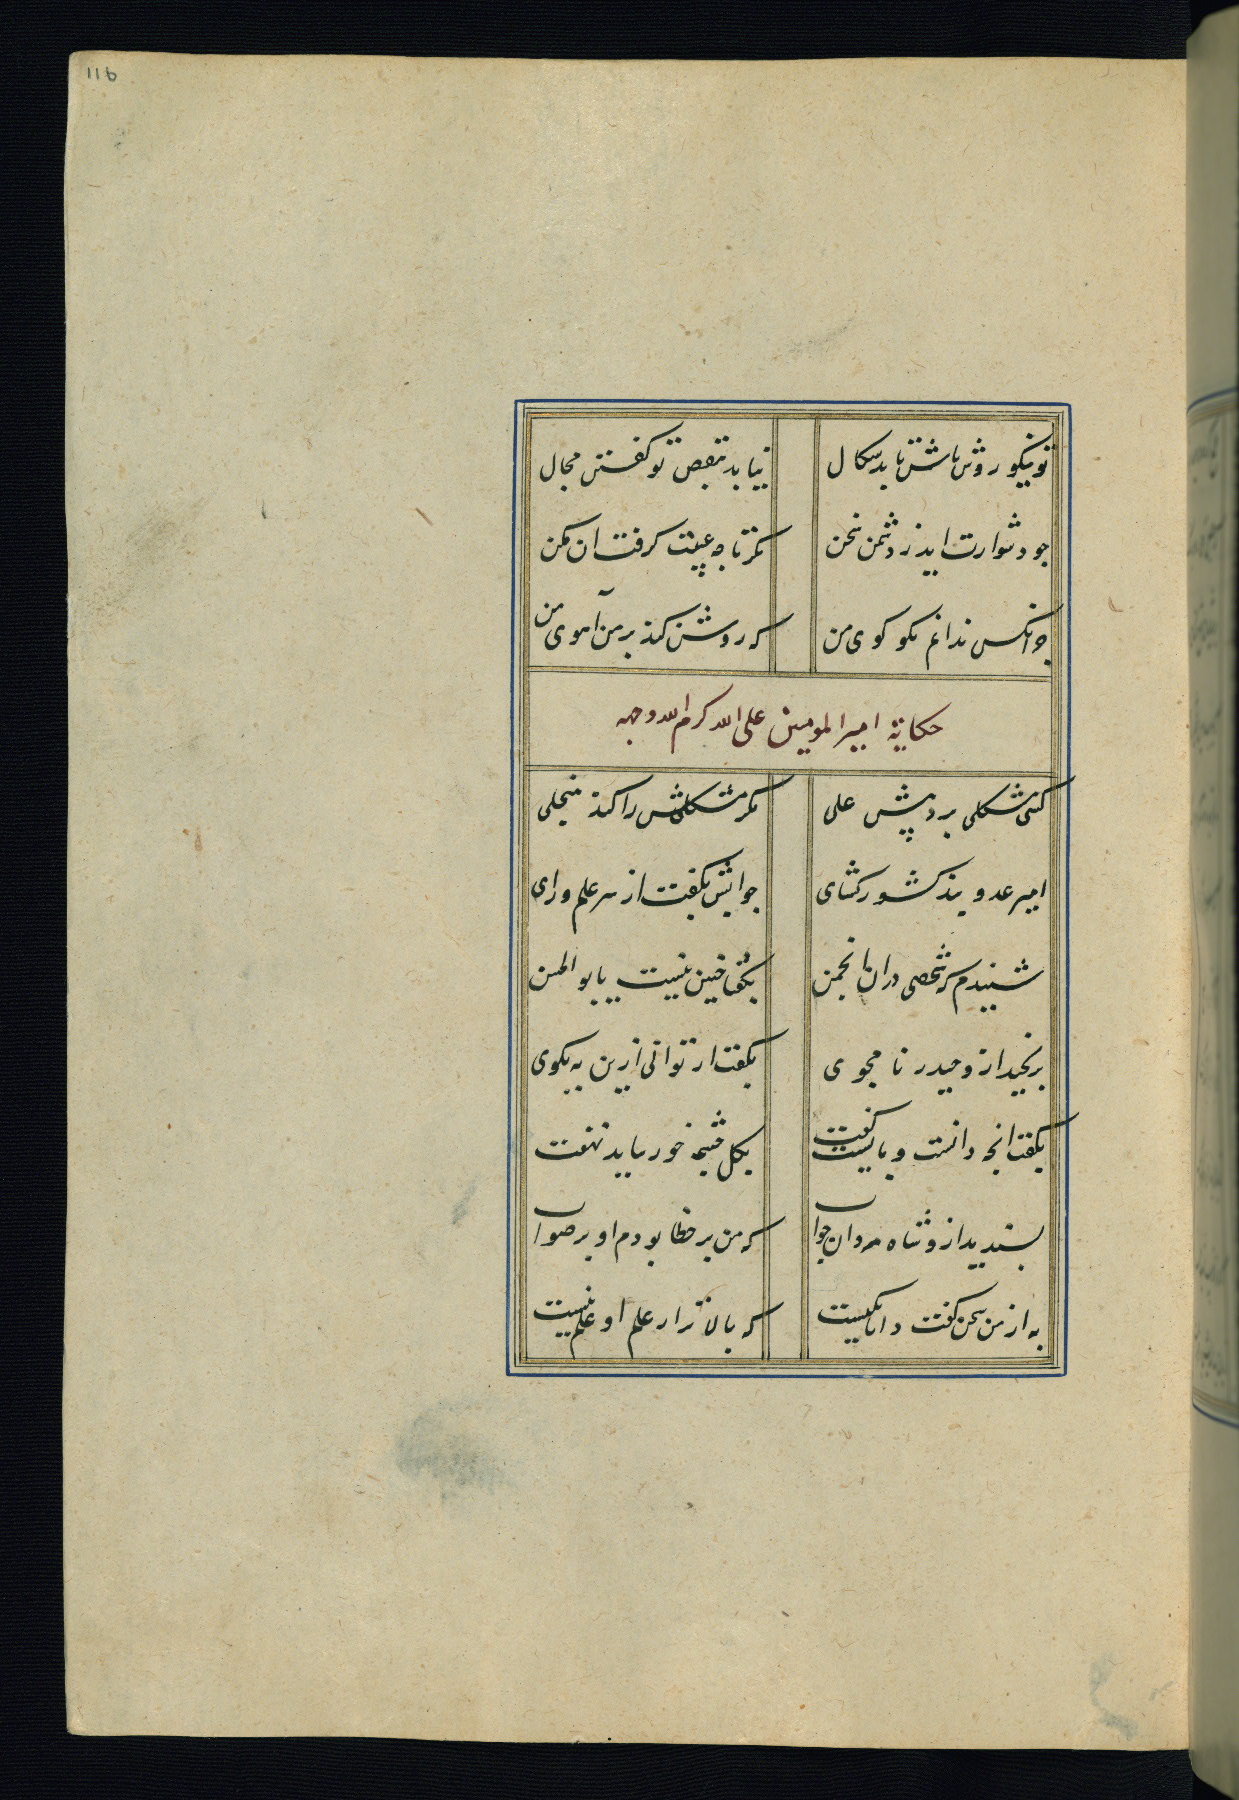 116
تو نیکو روش باش تا بدسکال نیابد بنقص تو کفتن مجال
جو دشوارت اید ز دشمن سخن نکر تا چه عیبت کرفت ان مکن
جز انکس ندانم نکو کوی من که روشن کند بر من آهوی من
حکایة امیر المومنین علی الله کرم الله وجهه
کسی مشکلی برد پیش علی مکر مشکلش را کند منجلی
امیر عدو بند کشور کشای جوابش بکفت از سر علم و رای
شنیدم که شخصی دران انجمن بکفتا چنین نیست یا بو الحسن
نرنجید ازو حیدر نامجوی بکفت ار توانی ازین به بکوی
بکفت انچه دانست و بایسته کفت بکل چشمه خور نباید نهفت
بسندید ازو شاه مردان جواب که من بر خطا بودم او بر صواب
به از من سخن کفت و دانا یکیست که بالاتر از علم او علم نیست